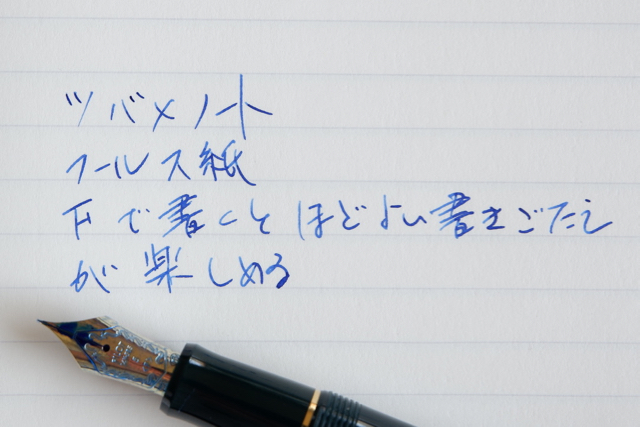 ツバメノート
フールス紙
Fで書くと ほどよい書きごたえ
が楽しめる